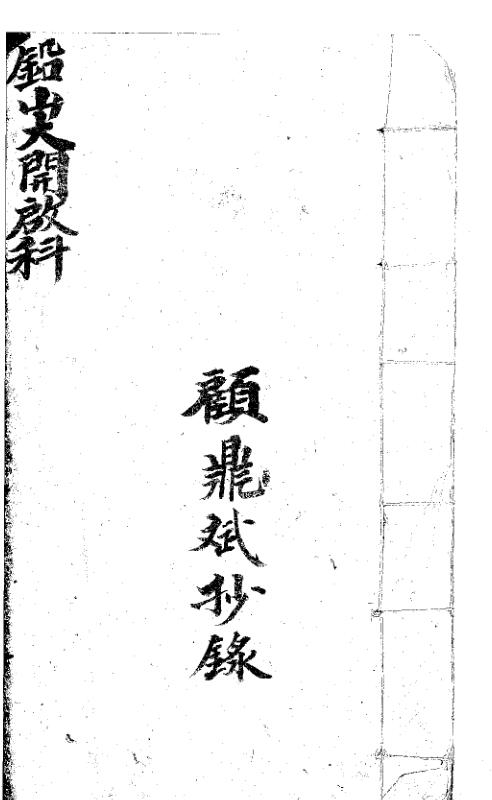 鉛山大開啟科
顧鼎斌抄錄